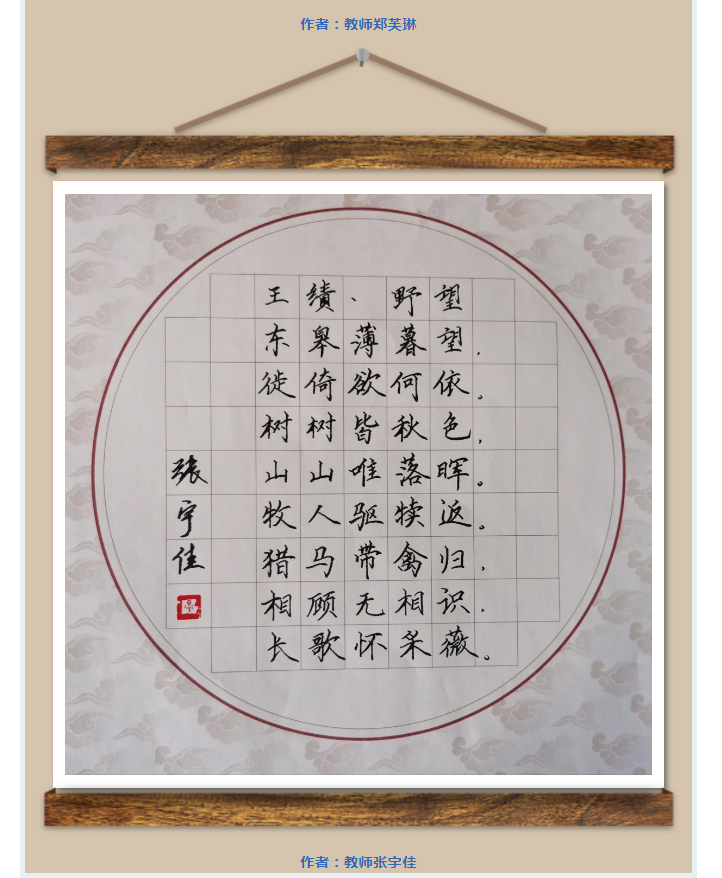 作者：教师郑芙琳
王绩、野望
东皋薄暮望，
徙倚欲何依。
树树皆秋色，
山山唯落晖。
牧人驱犊返。
猎马带禽归，
相顾无相识，
长歌怀采薇。
张宇佳
作者：教师张宇佳